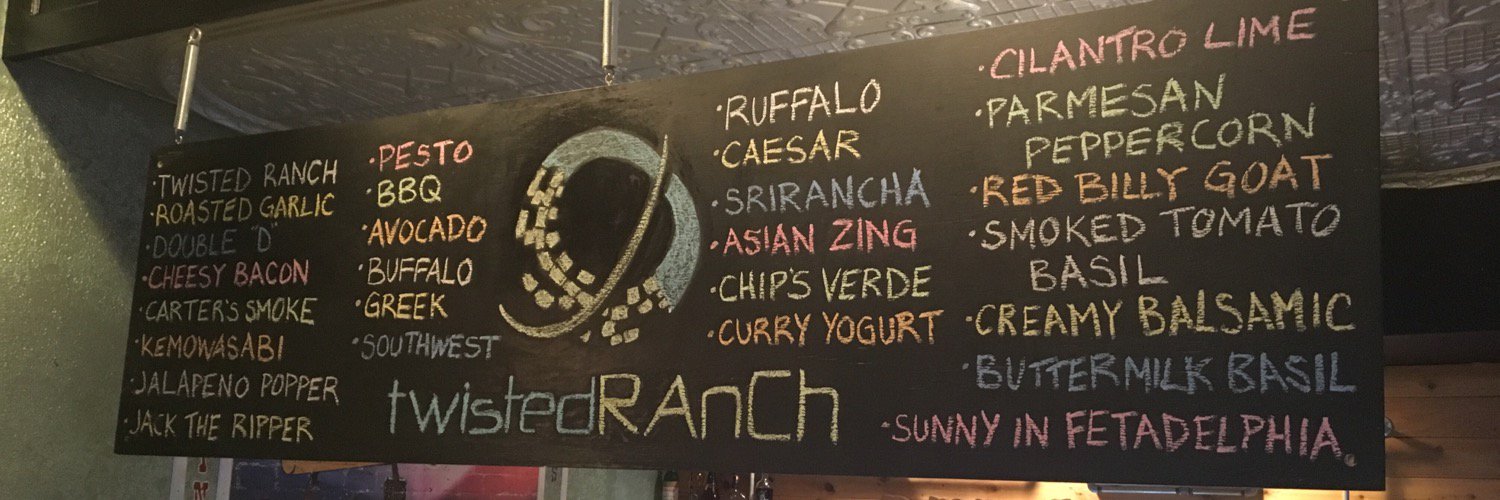 ·TWISTED RANCH
·ROASTED GARLIC
·DOUBLE "D"
·CHEESY BACON
·CARTER'S SMOKE
·KEMOWASABI
·JALAPENO POPPER
·JACK THE RIPPER
·PESTO
·BBQ
·AVOCADO
·BUFFALO
·GREEK
·SOUTHWEST
twistedRAnCh
·RUFFALO
·CAESAR
·SRIRANCHA
·ASIAN ZING
·CHIP'S VERDE
·CURRY YOGURT
·CILANTRO LIME
·PARMESAN
PEPPERCORN
·RED BILLY GOAT
·SMOKED TOMATO
BASIL
·CREAMY BALSAMIC
·BUTTERMILK BASIL
·SUNNY IN FETADELPHIA